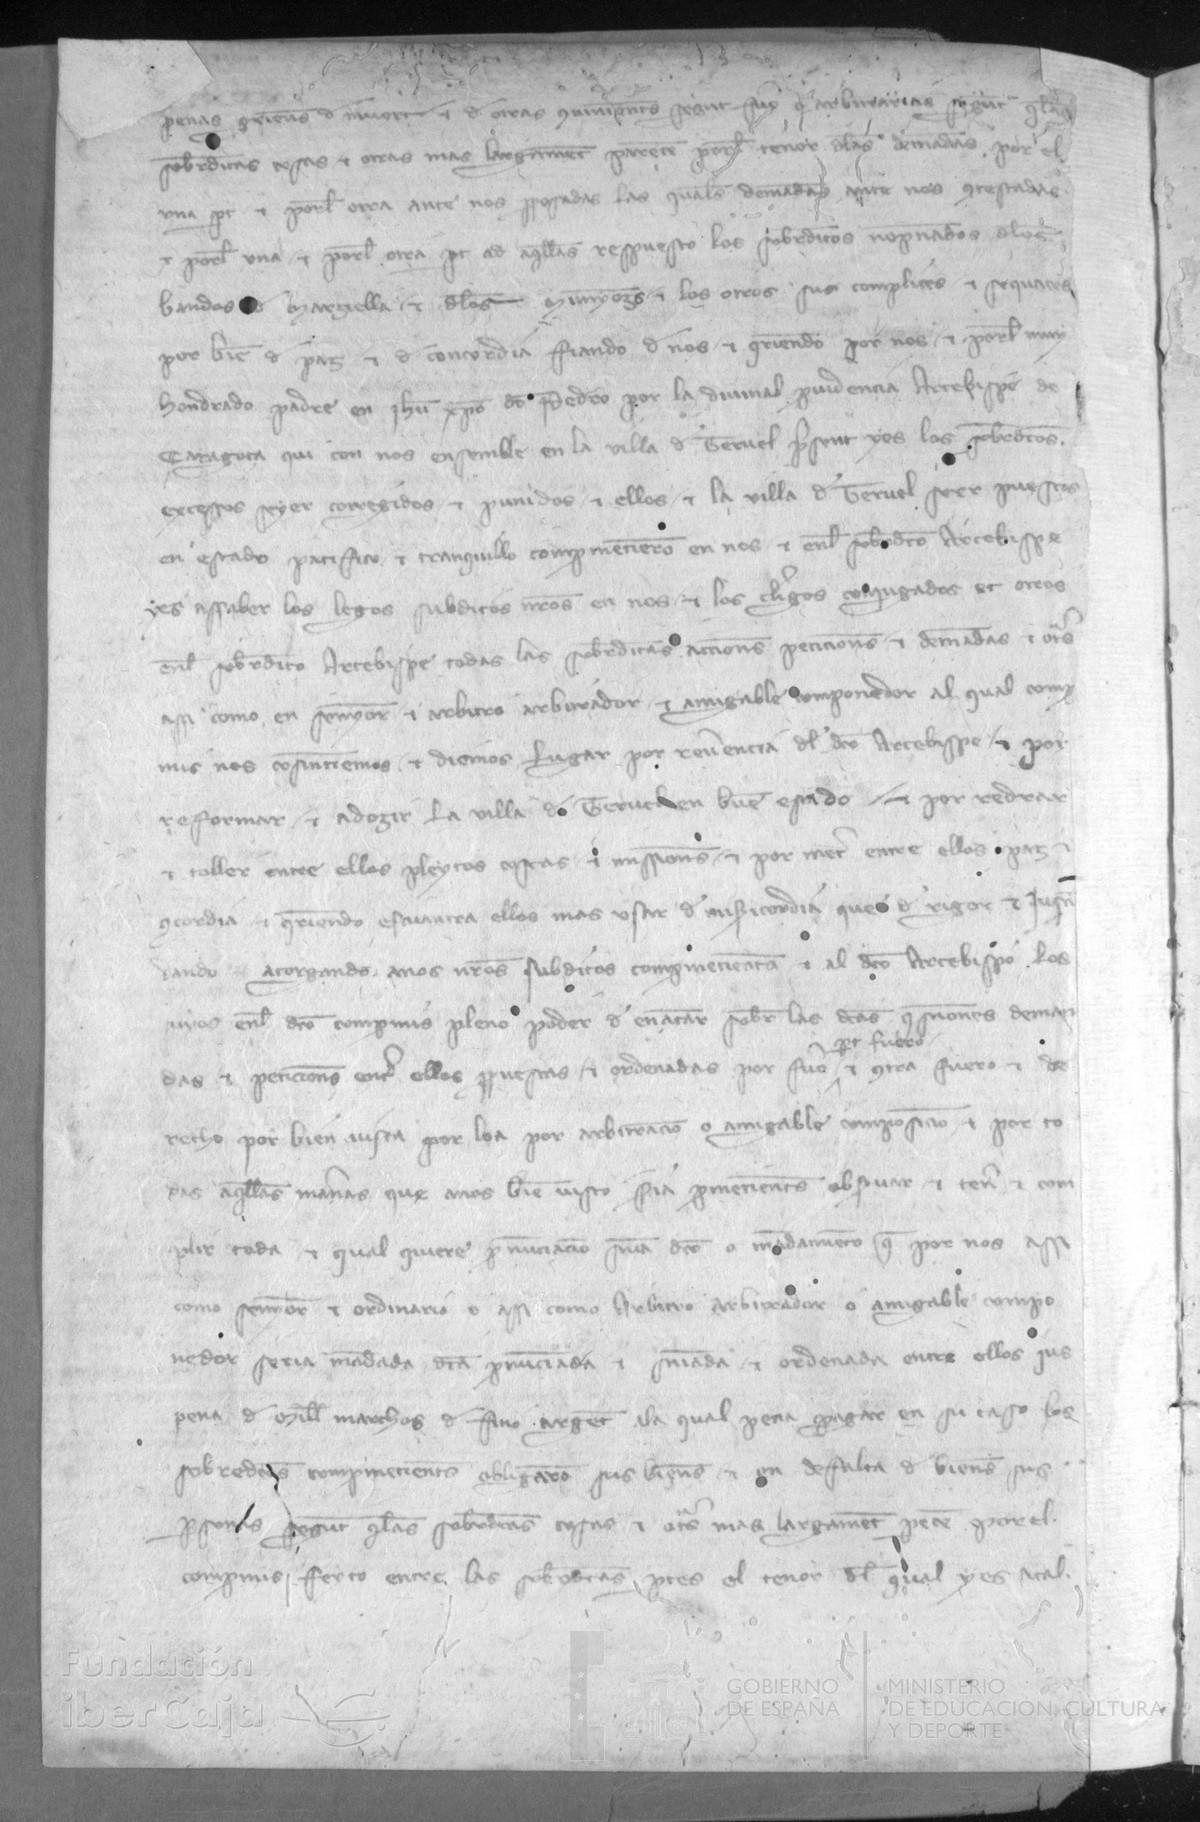 penas criens d muert & d otras segunt arbitrarias segunt
sobrdictas cosas & otras mas largament parece porl tenor dlas demadas por el
vna pt & porl otra ante nos pposadas las quals demadas ante nos contestadas
& porl vna & porl otra pt ad aqllas respuesto los sobrdictos nopnados dlos
bandos d Marziella & dlos Munyozs & los otros sus complices & sequaces
por bie d paz & d concordia fiando d nos & qriendo por nos & porl muy
hondrado padre en jhu xpo do Pedro por la diuinal puidencia Arcebispe de
Caragoca qui con nos ensemble en la villa d Teruel psent yes los sobrdctos
excessos seyer corregidos & punidos & ellos & la villa d Teruel seer puestos
en estado pacifico & tranquillo compmetiero en nos & enl sobrdcto Arcebispe
yes assaber los legos subditos nros en nos & los clrgos conjugados et otros
enl sobrdicto Arcebispe todas las sobrdictas accions peticions & demadas & otrs
assi como en senyor & arbitro arbitrador & amigable componedor al qual comp
mis nos cosintiemos & diemos lugar por reuencia dl dco Arcebispe & por
reformar & adozir la villa de Teruel en bue estado & por redrar
& toller entre ellos pleytos costas & missions & por metr entre ellos paz &
qcordia & qriendo escuantra ellos mas vsar d misicordia que d rigor & Justi
dando atorgando anos nros subditos compmetients & al dco Arcebispo los
suyos enl dco compmis pleno poder d enatar sobr las dctas qstiones deman
das & peticions entr ellos ppuestas & ordenadas por fuo & qtra fuero & de
pt fuero
recho por bien vista por loa por arbitracio o amigable composicio & por to
das aqllas maneras que anos bie visto sia pmetients obseruar & tenr & com
plir toda & qual quiere pnunciacio snia dco o madamiento q por nos assi
como senyor & ordinario o assi como Arbitro arbitrador o amigable compo
nedor seria madada dcta pnunciada & sniada & ordenada entre ellos jus
pena d Mill marchos d fino argent ala qual pena pagar en su caso los
sobredctos compmetients obligaro sus biens & en defalta d biens sus
psonas segut qlas sobrdctas cosas & otrs mas largament pece por el
compmis feyto entre las sobrdctas ptes el tenor dl qual yes atal
Fundación
iberCaja
GOBIERNO
DE ESPAÑA
MINISTERIO
DE EDUCACIÓN, CULTURA
Y DEPORTE